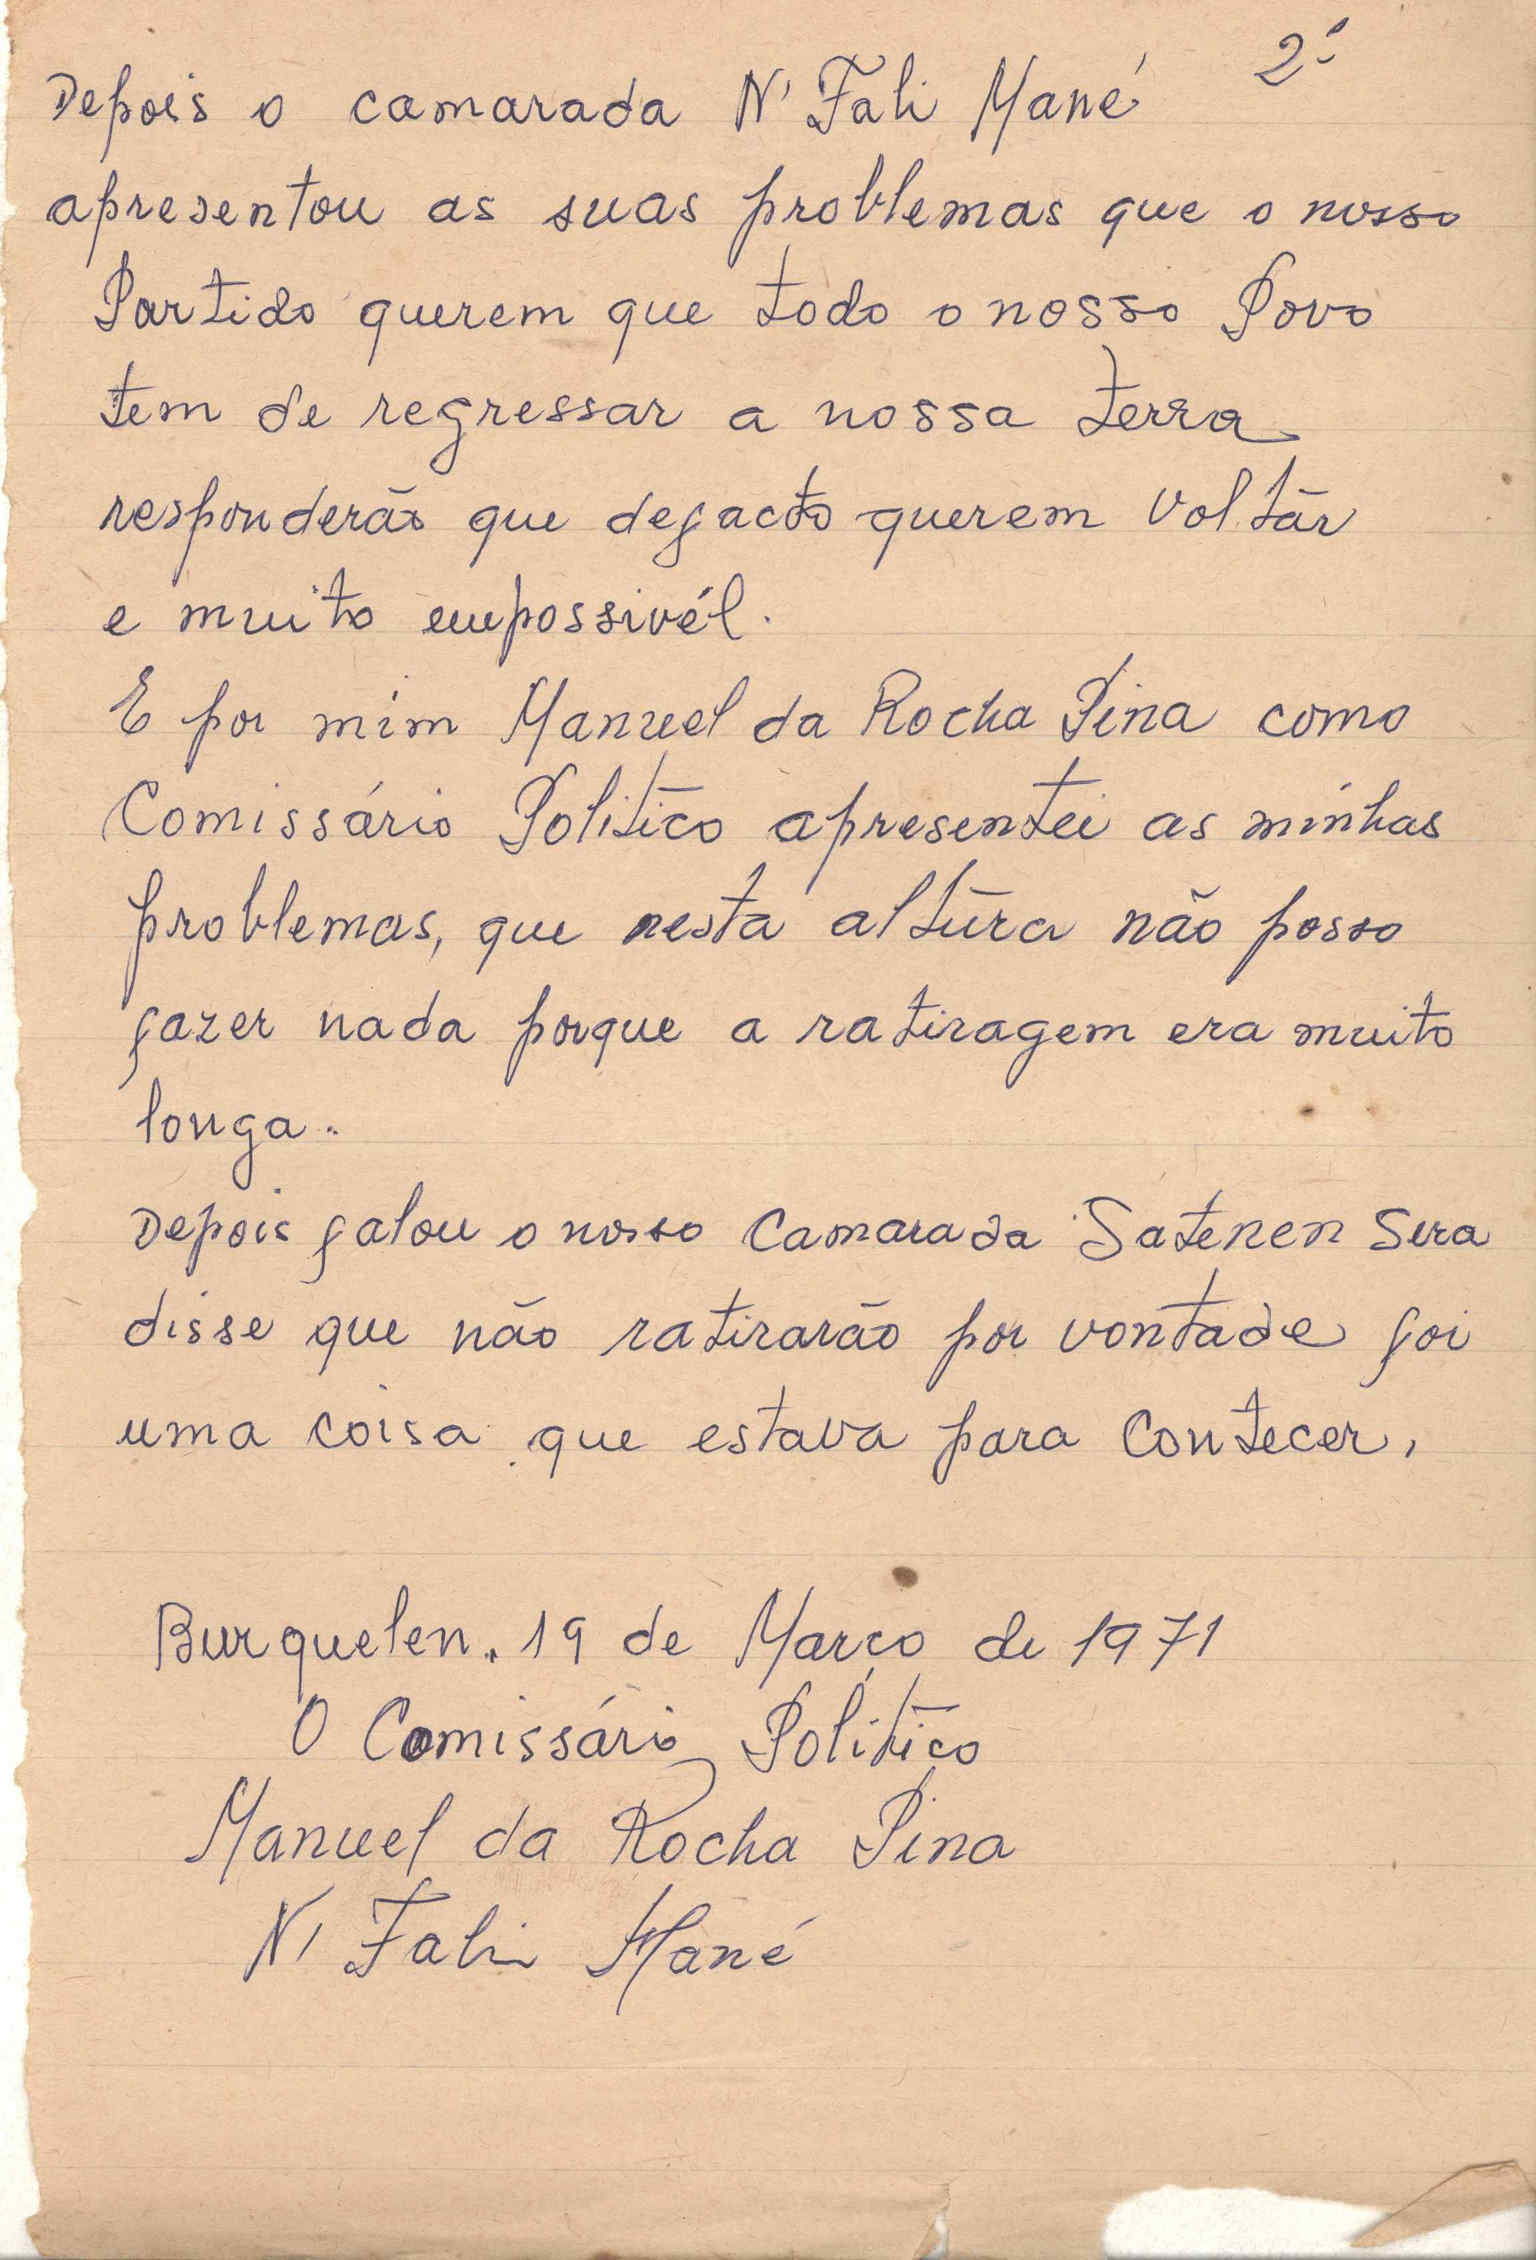 2ª
Depois o camarada N'Fali Mané
apresentou as suas problemas que o nosso
Partido querem que todo o nosso Povo
tem de regressar a nossa terra
responderão que defacto querem voltár
e muito empossivél.
E por mim Manuel da Rocha Pina como
Comissário Politico apresentei as minhas
problemas, que nesta altura não posso
fazer nada porque a ratiragem era muito
longa..
Depois falou o nosso Camarada Satenen Sera
disse que não ratirarão por vontade foi
uma coisa que estava para Contecer,
Burquelen, 19 de Março de 1971
O Comissário Politico
Manuel da Rocha Pina
N'Fali Mané